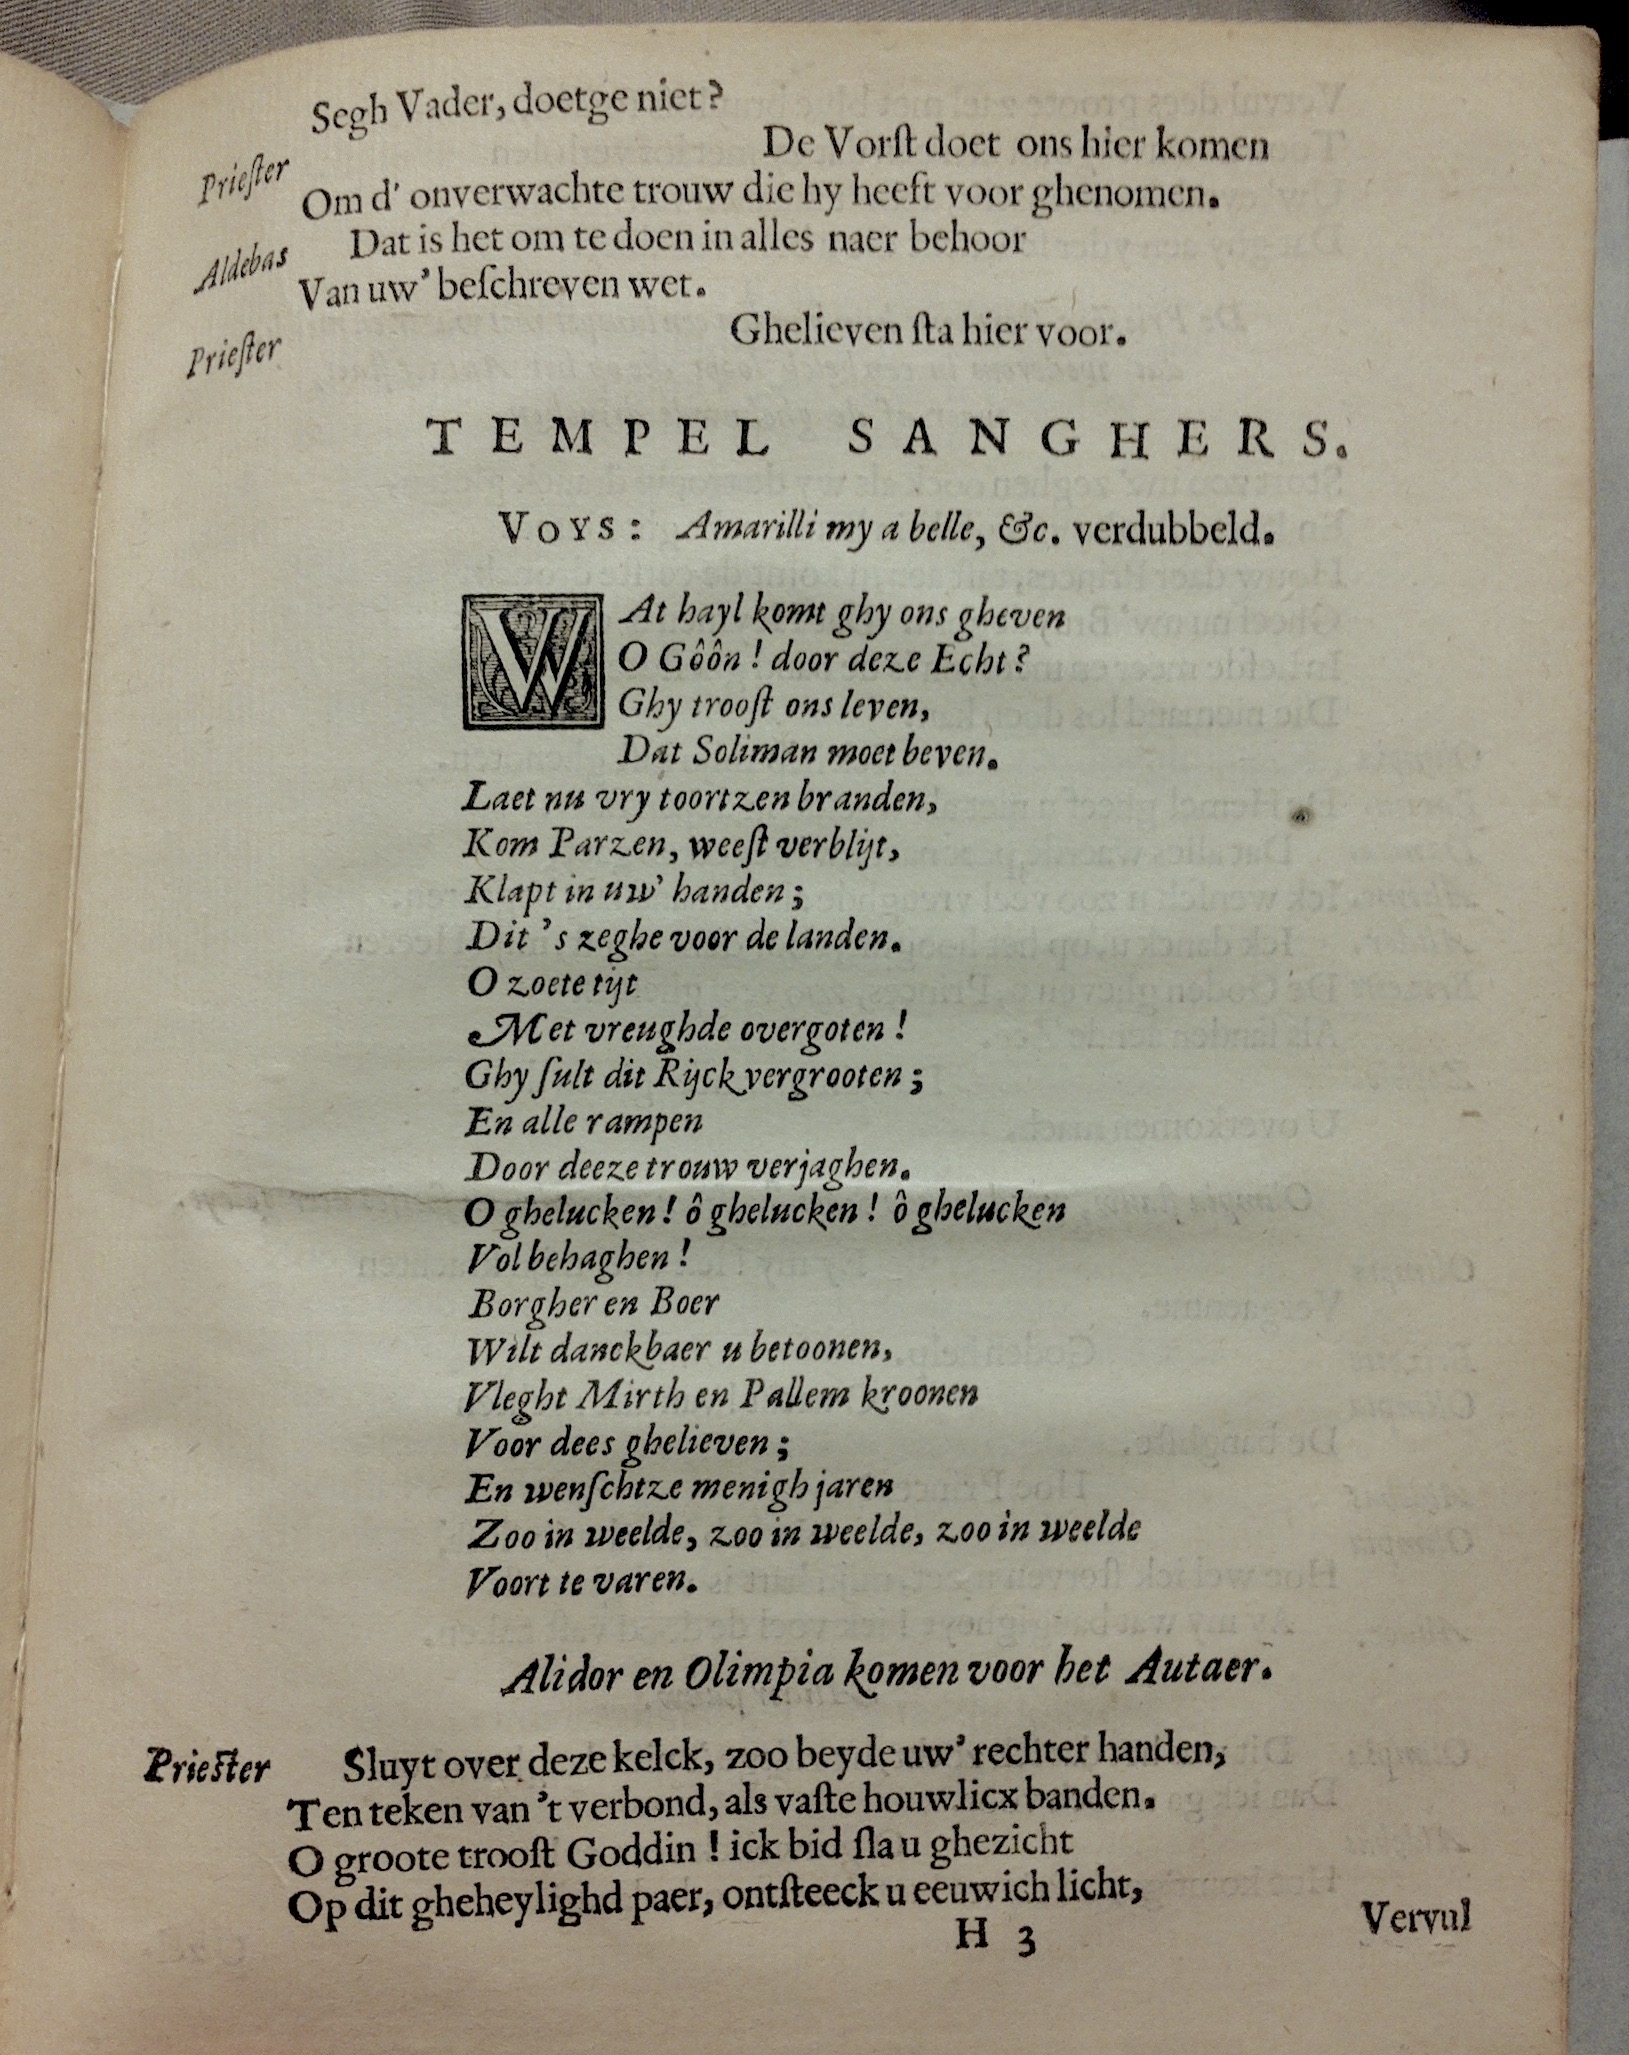 Segh Vader, doetge niet?
Prieſter De Vorſt doet ons hier komen
Om d' onverwachte trouw die hy heeft voor ghenomen.
Aldebas Dat is het om te doen in alles naer behoor
Van uw' beſchreven wet.
Prieſter Ghelieven ſta hier voor.
TEMPEL SANGHERS.
VOYS: Amarilli my a belle, &c. verdubbeld.
WAt hayl komt ghy ons gheven
O Gôôn! door deze Echt?
Ghy trooſt ons leven,
Dat Soliman moet beven.
Laet nu vry toortzen branden,
Kom Parzen, weeſt verblijt,
Klapt in uw' handen;
Dit 's zeghe voor de landen.
O zoete tijt
Met vreughde overgoten!
Ghy ſult dit Rijck vergrooten;
En alle rampen
Door deeze trouw verjaghen.
O ghelucken! ô ghelucken! ô ghelucken
Vol behaghen!
Borgher en Boer
Wilt danckbaer u betoonen,
Vleght Mirth en Pallem kroonen
Voor dees ghelieven;
En wenſchtze menigh jaren
Zoo in weelde, zoo in weelde, zoo in weelde
Voort te varen.
Alidor en Olimpia komen voor het Autaer.
Priester Sluyt over deze kelck, zoo beyde uw' rechter handen,
Ten teken van 't verbond, als vaſte houwlicx banden.
O groote trooſt Goddin! ick bid ſla u ghezicht
Op dit gheheylighd paer, ontſteeck u eeuwich licht,
H 3
Vervul